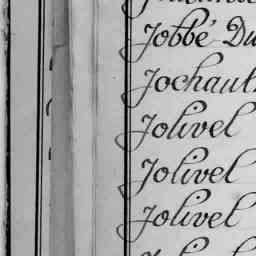 Jobbé Du
Jochault
Jolivel
Jolivel
Jolivel